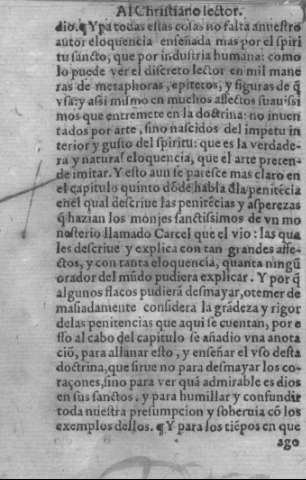 Al Christiano lector.
dio. ¶ Y pa todas estas cosas no falta a nuestro
autor eloquencia enseñada mas por el spiri
tu sancto, que por industria humana: como
lo puede ver el discreto lector en mil mane
ras de metaphoras, epitetos, y figuras de q̃
vsa: y assi mismo en muchos affectos suauissi
mos que entremete en la doctrina: no inuen
tados por arte, sino nascidos del impetu in
terior y gusto del spiritu: que es la verdade-
ra y natural eloquencia, que el arte preten-
de imitar. Y esto aun se paresce mas claro en
el capitulo quinto dõde habla d̃la penitẽcia
enel qual descriue las penitẽcias y asperezas
q̃ hazian los monjes sanctissimos de vn mo
nesterio llamado Carcel que el vio: las qua
les descriue y explica con tan grandes affe-
ctos, y con tanta eloquencia, quanta ningũ
orador del mũdo pudiera explicar. Y por q̃
algunos flacos pudierã desmayar, o temer de
masiadamente considera la grãdeza y rigor
delas penitencias que aqui se cuentan, por e
sso al cabo del capitulo se añadio vna anota
ciõ, para allanar esto, y enseñar el vso desta
doctrina, que sirue no para desmayar los co-
raçones, sino para ver quã admirable es dios
en sus sanctos, y para humillar y confundir
toda nuestra presumpcion y soberuia cõ los
exemplos dellos. ¶ Y para los tiẽpos en que
ago